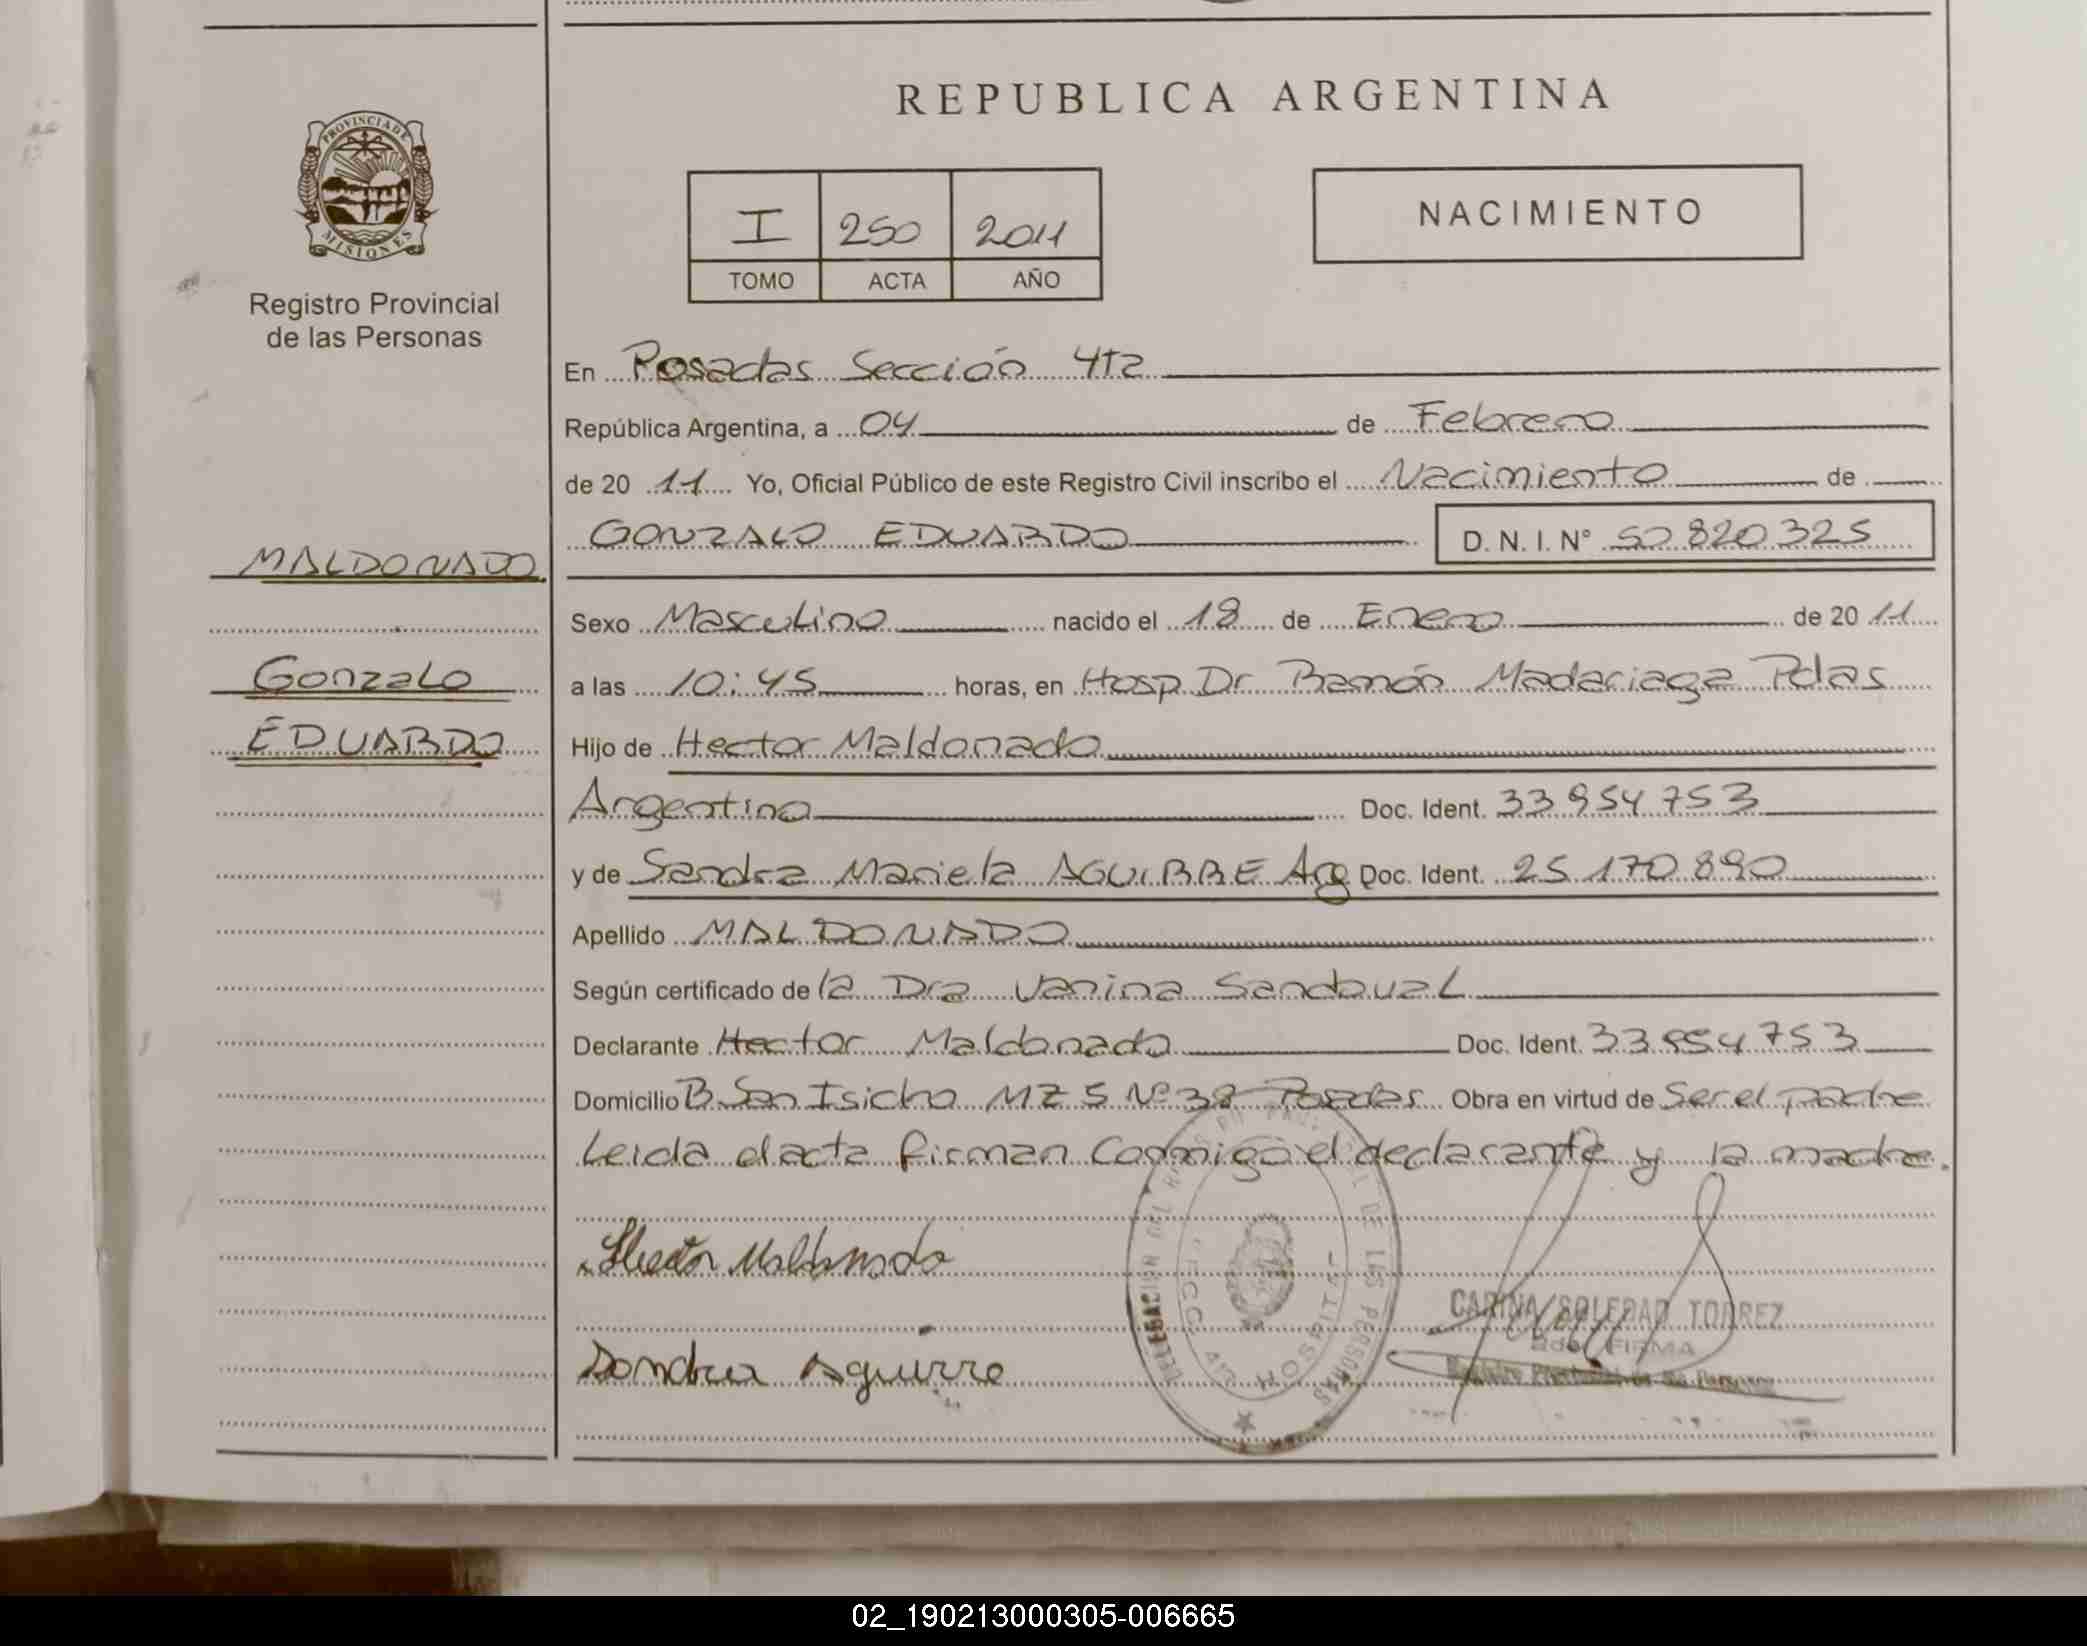 REPUBLICA ARGENTINA
PROVINCIA DE
MISIONES
Registro Provincial
de las Personas
I 250 2011
TOMO ACTA AÑO
NACIMIENTO
En Posadas Sección 4ta
República Argentina, a 04 de Febrero
de 20 11 Yo, Oficial Público de este Registro Civil inscribo el Nacimiento de
GONZALO EDUARDO D. N. I. N° 50 820 325
MALDONADO
Gonzalo
EDUARDO
Sexo Masculino nacido el 18 de Enero de 20 11
a las 10:45 horas, en Hosp Dr Ramón Madariaga Pdas
Hijo de Hector Maldonado
Argentino Doc. Ident. 33 954 753
y de Sandra Mariela AGUIRRE Arg Doc. Ident. 25 170 890
Apellido MALDONADO
Según certificado de la Dra Vanina Sandoval
Declarante Hector Maldonado Doc. Ident. 33 954 753
Domicilio B San Isidro MZ 5 Nº 38 Posadas Obra en virtud de Ser el padre
Leida el acta firman conmigo el declarante y la madre.
Hector Maldonado
Sandra Aguirre
DELEGACION DE LAS PERSONAS
HOSPITAL
CARINA SOLEDAD TORREZ
FIRMA
02_190213000305-006665